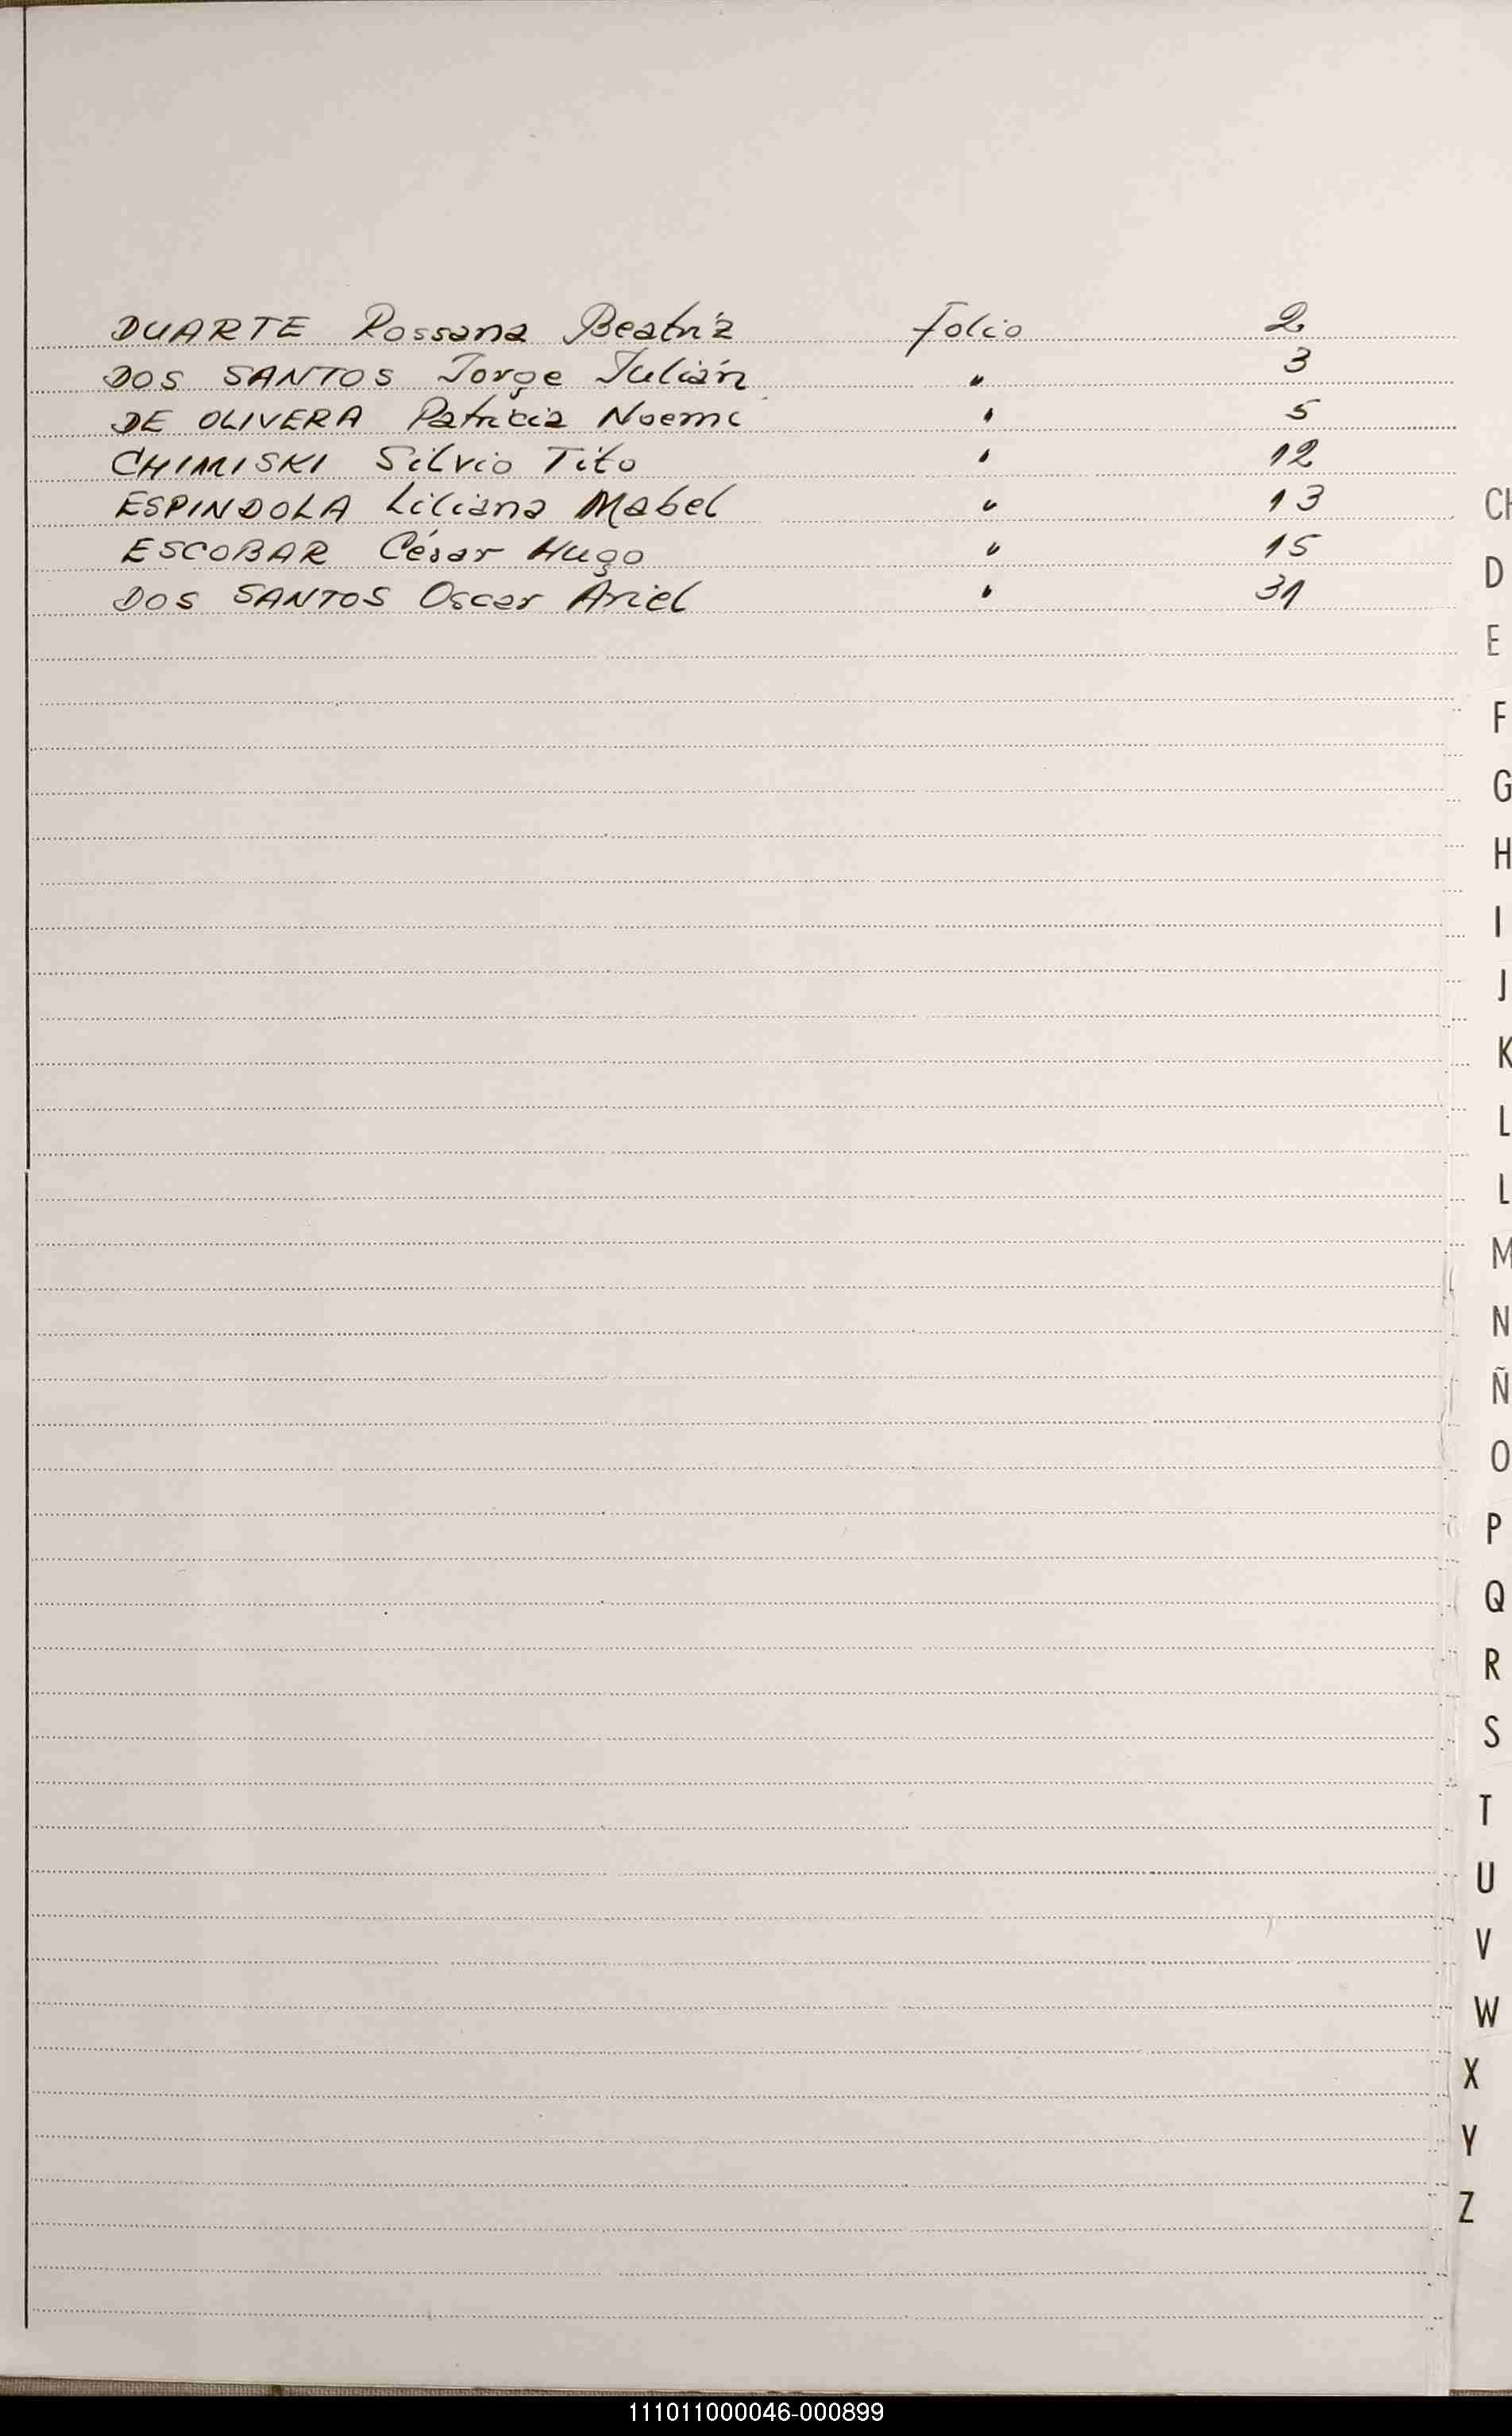 DUARTE Rossana Beatriz folio 2
DOS SANTOS Jorge Julián " 3
DE OLIVERA Patricia Noemi " 5
CHIMISKI Silvio Tito " 12
ESPINDOLA Liliana Mabel " 13
ESCOBAR César Hugo " 15
DOS SANTOS Oscar Ariel " 31
CH
D
E
F
G
H
I
J
K
L
L
M
N
Ñ
O
P
Q
R
S
T
U
V
W
X
Y
Z
111011000046-000899